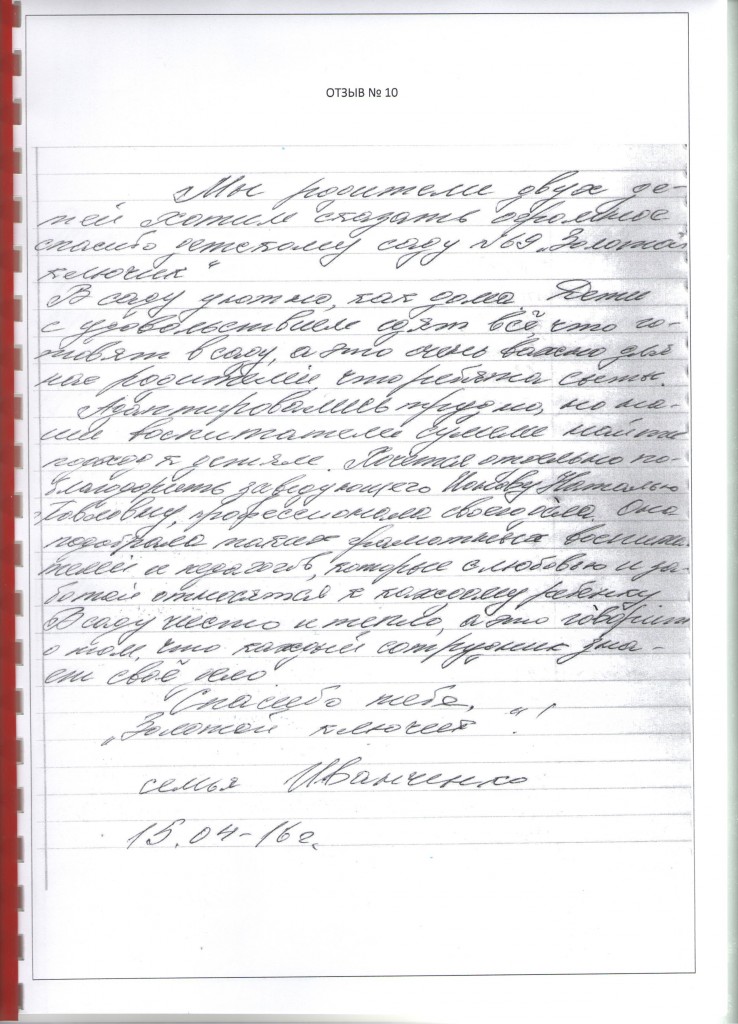 ОТЗЫВ № 10
Мы родители двух де-
тей хотим сказать огромное
спасибо детскому саду №69 „Золотой
ключик“
В саду уютно, как дома. Дети
с удовольствием едят всё, что го-
товят в саду, а это очень важно для
нас родителей, что ребята сыты.
Адаптировались трудно, но на-
ши воспитатели сумели найти
подход к детям. Хочется отдельно по-
благодарить заведующего Наталью
Павловну, профессионала своего дела. Она
подобрала таких грамотных воспита-
телей и педагогов, которые с любовью и за-
ботой относятся к каждому ребенку
В саду чисто и тепло, а это говорит
о том, что каждый сотрудник зна-
ет своё дело
Спасибо тебе,
„Золотой ключик“!
семья Иванченко
15.04-16г.